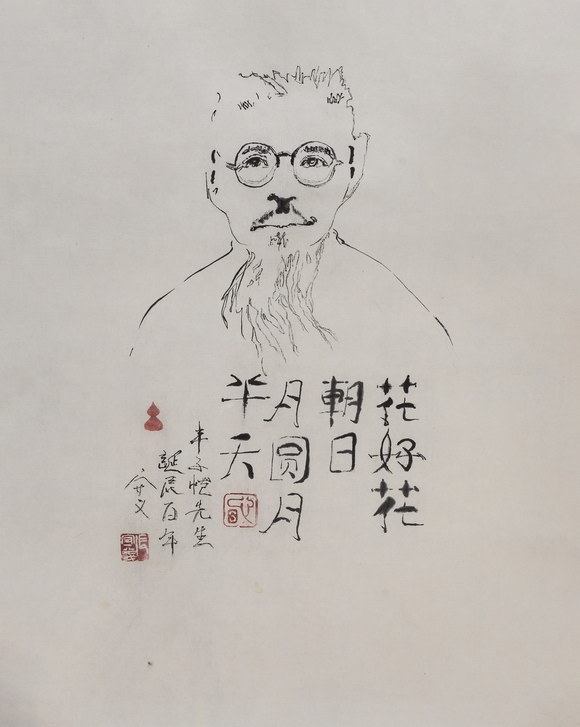 花好花
朝日
月圆月
半天
丰子愷先生
誕辰百年